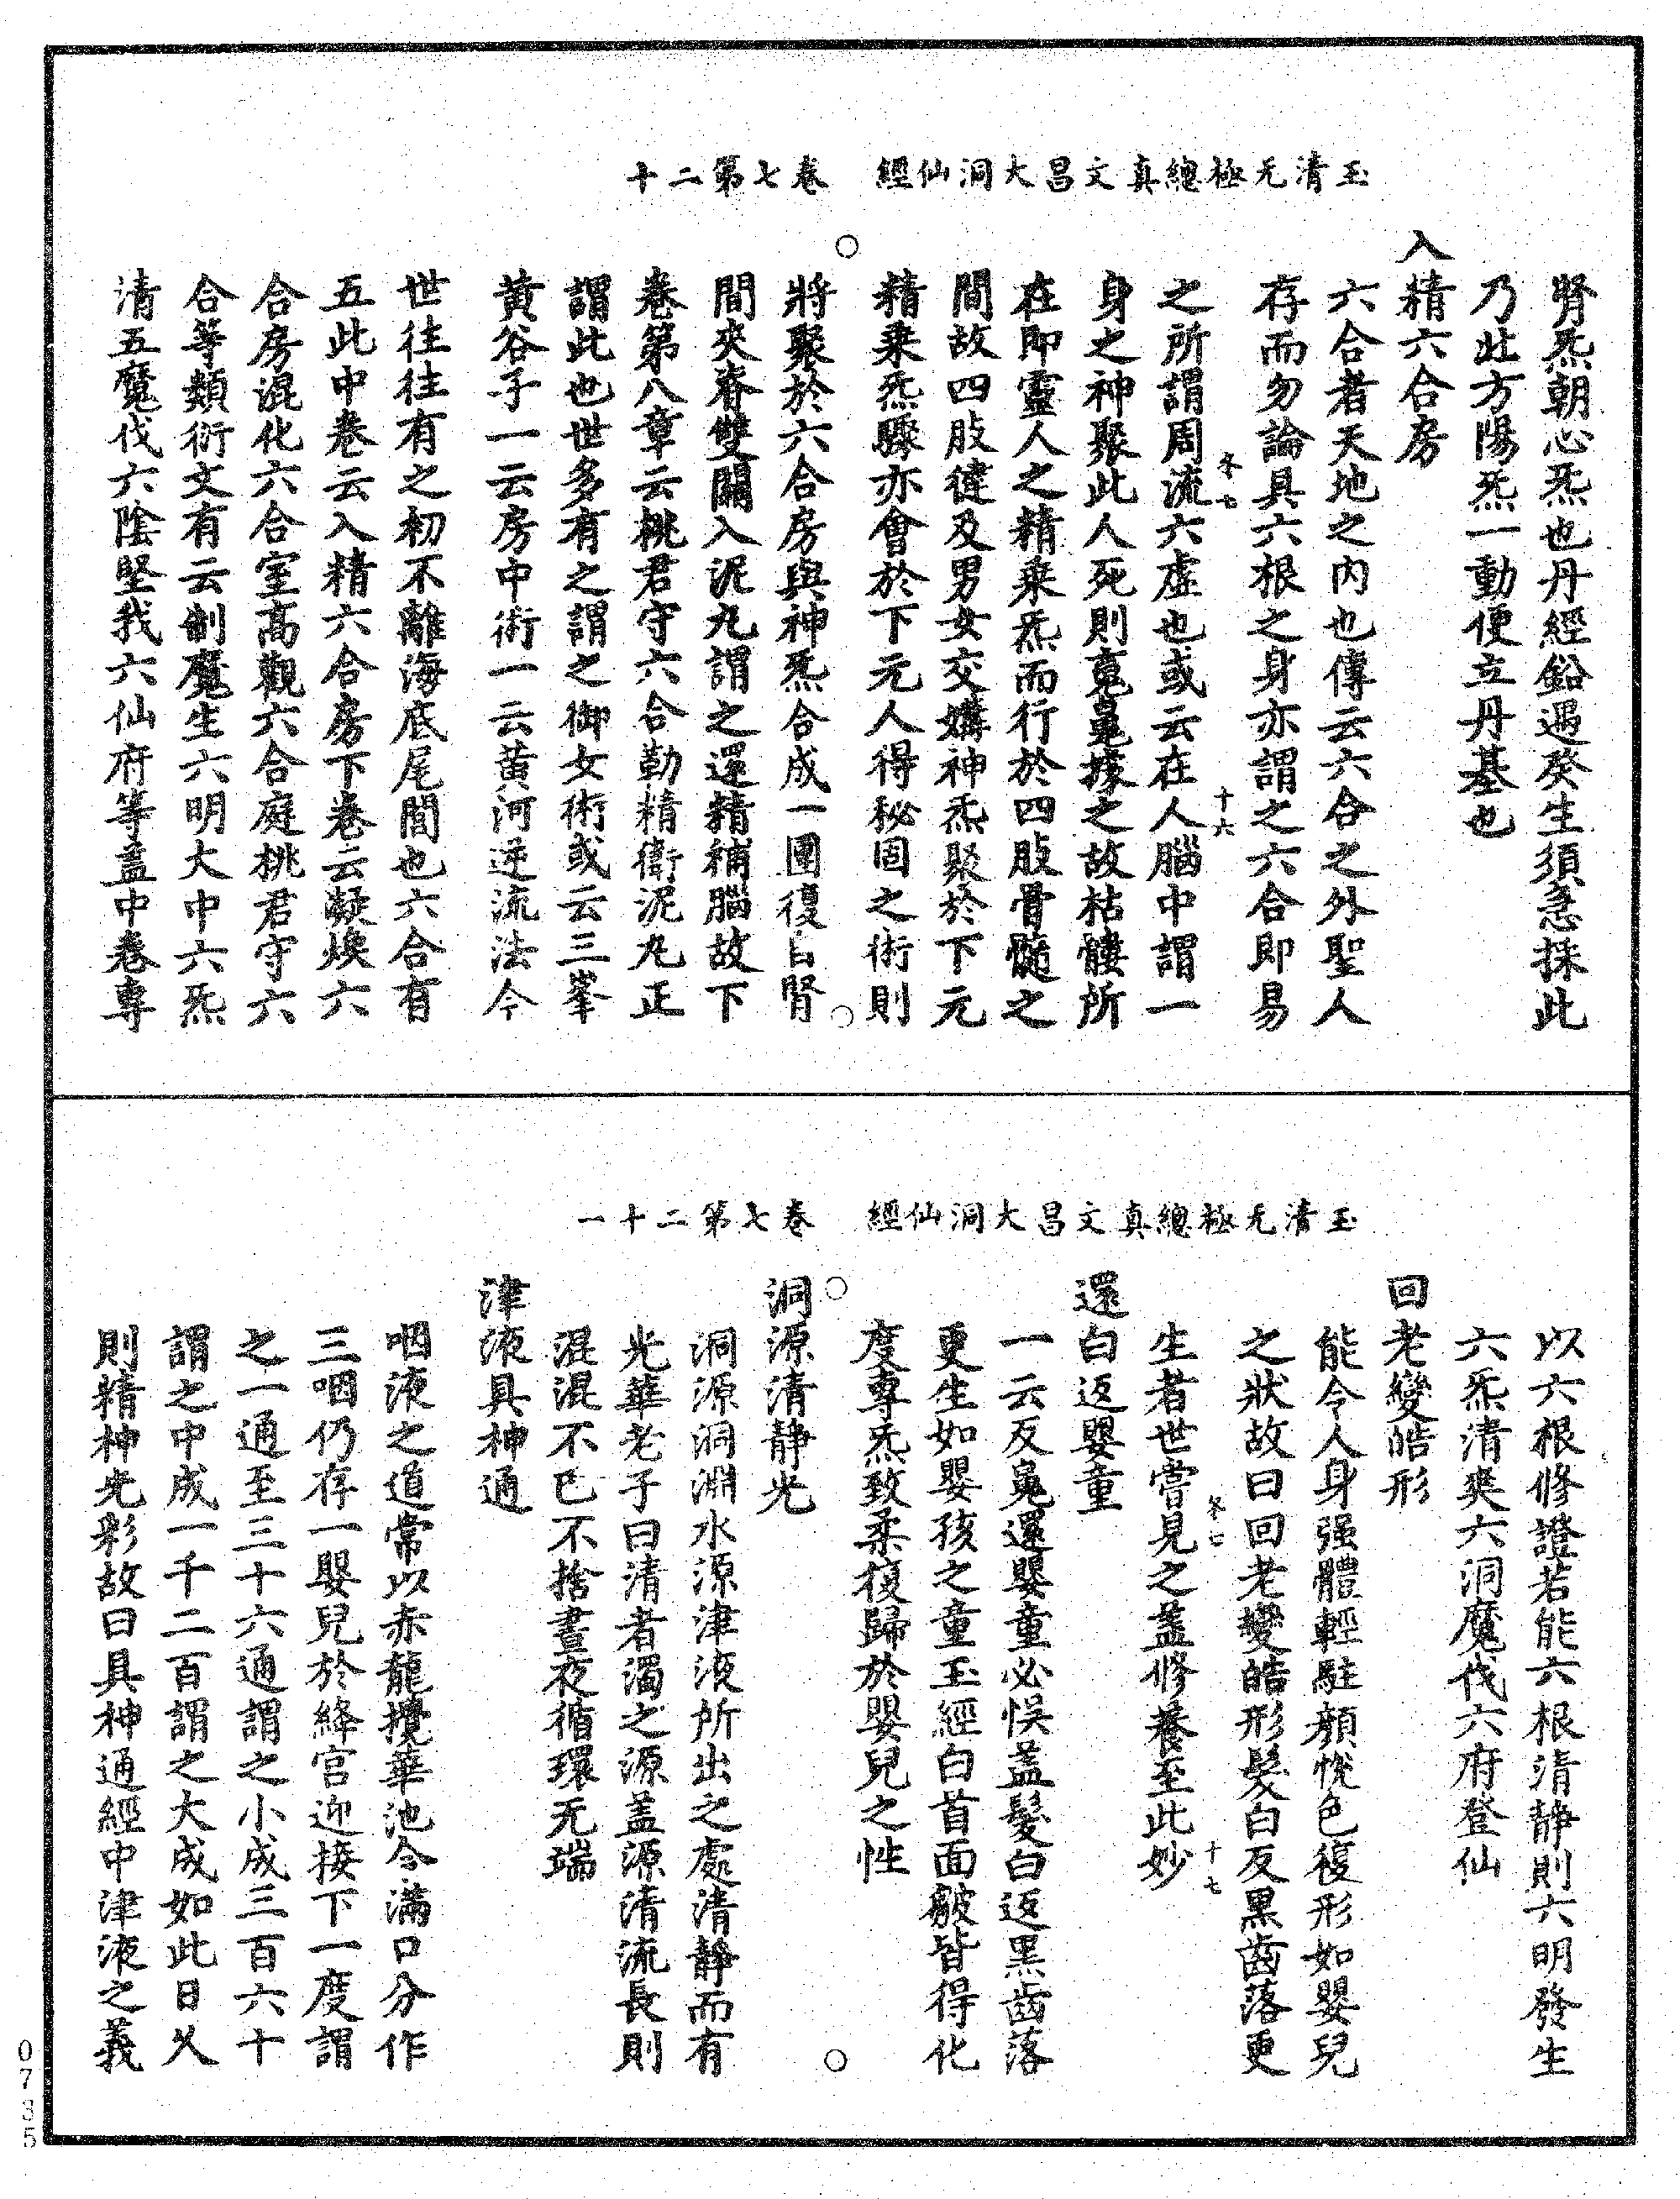 玉清无極總真文昌大洞仙經　卷七第二十
腎炁朝心炁也丹經鉛遇癸生須急採此
乃北方陽炁一動便立丹基也
入精六合房
六合者天地之內也傳云六合之外聖人
存而勿論具六根之身亦謂之六合即易
之所謂周流六虛也或云在人腦中謂一
冬七
十六
身之神聚此人死則䰟鬼據之故枯髏所
在即靈人之精乗炁而行於四肢骨髓之
間故四肢徤及男女交媾神炁聚於下元
精乗炁驟亦會於下元人得秘固之術則
將聚於六合房與神炁合成一團復自腎
間夾脊雙關入泥丸謂之還精補腦故下
卷第八章云桃君守六合勒精衛泥丸正
謂此也世多有之謂之御女術或云三峯
黃谷子一云房中術一云黃河逆流法今
世徃徃有之初不離海底尾閭也六合有
五此中卷云入精六合房下卷云凝煥六
合房混化六合室高觀六合庭桃君守六
合等類衍文有云制魔生六明大中六炁
清五魔伐六陰堅我六仙府等盖中卷専
玉清无極總真文昌大洞仙經　卷七第二十一
以六根修證若能六根清静則六明發生
六炁清爽六洞魔伐六府登仙
回老變皓形
能令人身强體輕駐顏恱色復形如嬰兒
之狀故曰回老變皓形髮白反黒齒落更
生若世嘗見之盖修養至此妙
十七
還白返嬰童
一云反䰟還嬰童必悮盖髮白返黒齒落
更生如嬰孩之童玉經白首面皺皆得化
度専炁致柔復歸於嬰兒之性
洞源清静光
洞源洞淵水源津液所出之處清静而有
光華老子曰清者濁之源盖源清流長則
混混不已不捨晝夜循環无端
津液具神通
咽液之道常以赤龍攪華池令滿口分作
三咽仍存一嬰兒於絳宮迎接下一度謂
之一通至三十六通謂之小成三百六十
謂之中成一千二百謂之大成如此日乆
則精神光彩故曰具神通經中津液之義
0735